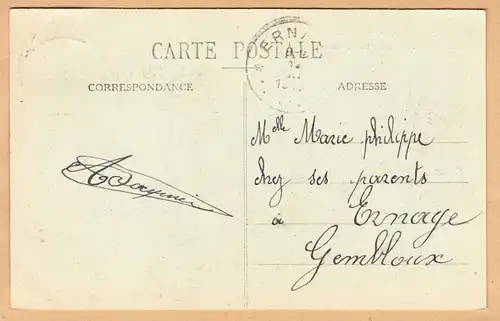 CARTE POSTALE
ERNA
CORRESPONDANCE
ADRESSE
Melle Marie philippe
chez ses parents
à Ernage
Gembloux